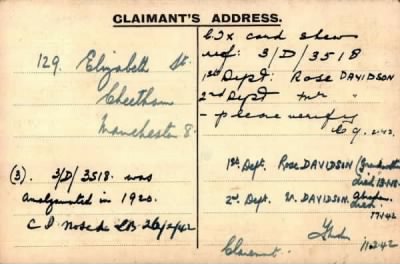 CLAIMANT'S ADDRESS.
129. Elizabeth St.
Cheetham
Manchester 8.
(3). 3/D/3518. was
amalgamated in 1920.
C I noted 26/2/42
card shew
ref: 3/D/3518
1st Dept: Rose DAVIDSON
2nd Dept Mr "
- please verify
2.42.
1st Dept. Rose DAVIDSON (Grandmother
died
2nd Dept. M. DAVIDSON
died
17/1/42
Claimant.